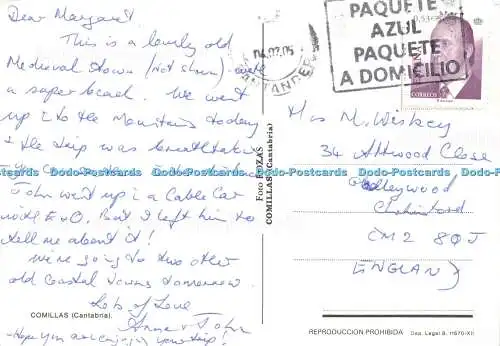 Dear Margaret
This is a lovely old
Medieval town (not shown) with
a super beach. We went
up to the Mountains today
& the trip was breathtaking
John went up in a Cable Car
But I left him to
tell me about it!
We're going to two other
old Coastal towns tomorrow.
Lots of Love
Anne & John
Hope you are enjoying your trip!
COMILLAS (Cantabria).
Foto
COMILLAS (Cantabria)
04.07.05
SANTANDER
PAQUETE
AZUL
PAQUETE
A DOMICILIO
0,53€
ESPAÑA
CORREOS
Mrs M. Weskey
34 Attwood Close
Chelmsford
CM2 8QJ
ENGLAND
REPRODUCCION PROHIBIDA
Dep. Legal B. 11570-XII
Dodo-Postcards Dodo-Postcards Dodo-Postcards Dodo-Postcards Dodo-Postcards